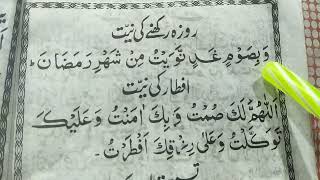 روزہ رکھنے کی نیت
وَبِصَوْمِ غَدٍ نَّوَيْتُ مِنْ شَهْرِ رَمَضَانَ ط
افطار کی نیت
اَللّٰهُمَّ لَكَ صُمْتُ وَبِكَ اٰمَنْتُ وَعَلَيْكَ
تَوَكَّلْتُ وَعَلٰى رِزْقِكَ اَفْطَرْتُ۔